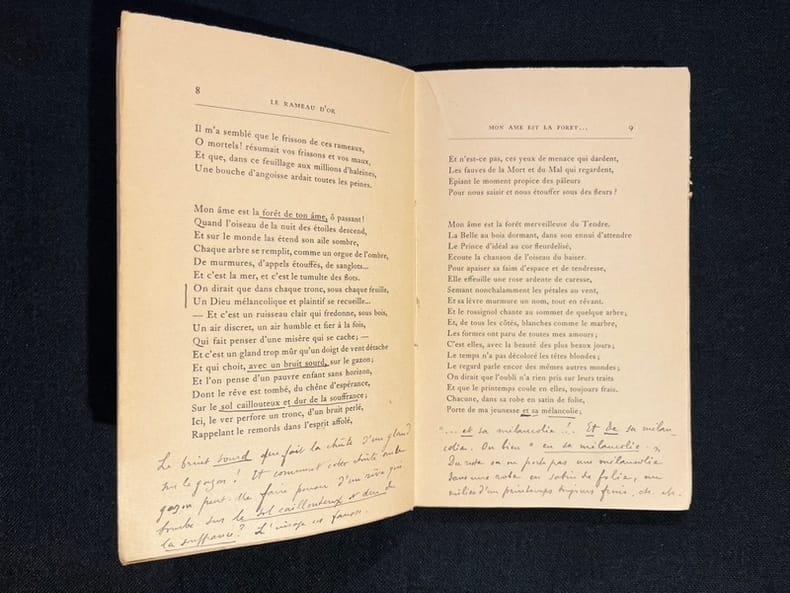 8
LE RAMEAU D'OR
Il m'a semblé que le frisson de ces rameaux,
O mortels! résumait vos frissons et vos maux,
Et que, dans ce feuillage aux millions d'haleines,
Une bouche d'angoisse ardait toutes les peines.
Mon âme est la forêt de ton âme, ô passant!
Quand l'oiseau de la nuit des étoiles descend,
Et sur le monde las étend son aile sombre,
Chaque arbre se remplit, comme un orgue de l'ombre,
De murmures, d'appels étouffés, de sanglots...
Et c'est la mer, et c'est le tumulte des flots.
On dirait que dans chaque tronc, sous chaque feuille,
Un Dieu mélancolique et plaintif se recueille...
— Et c'est un ruisseau clair qui fredonne, sous bois,
Un air discret, un air humble et fier à la fois,
Qui fait penser d'une misère qui se cache; —
Et c'est un gland trop mûr qu'un doigt de vent détache
Et qui choit, avec un bruit sourd, sur le gazon;
Et l'on pense d'un pauvre enfant sans horizon,
Dont le rêve est tombé, du chêne d'espérance,
Sur le sol caillouteux et dur de la souffrance;
Ici, le ver perfore un tronc, d'un bruit perlé,
Rappelant le remords dans l'esprit affolé,
Le bruit sourd que fait la chûte d'un gland
sur le gazon! Et comment cette chûte sur le
gazon peut-elle faire penser d'un rêve qui
tombe sur le sol caillouteux et dur de
la souffrance? L'image est fausse.
MON AME EST LA FORET...
9
Et n'est-ce pas, ces yeux de menace qui dardent,
Les fauves de la Mort et du Mal qui regardent,
Epiant le moment propice des pâleurs
Pour nous saisir et nous étouffer sous des fleurs?
Mon âme est la forêt merveilleuse du Tendre.
La Belle au bois dormant, dans son ennui d'attendre
Le Prince d'idéal au cor fleurdelisé,
Ecoute la chanson de l'oiseau du baiser.
Pour apaiser sa faim d'espace et de tendresse,
Elle effeuille une rose ardente de caresse,
Semant nonchalamment les pétales au vent,
Et sa lèvre murmure un nom, tout en rêvant.
Et le rossignol chante au sommet de quelque arbre;
Et, de tous les côtés, blanches comme le marbre,
Les formes ont paru de toutes mes amours;
C'est elles, avec la beauté des plus beaux jours;
Le temps n'a pas décoloré les têtes blondes;
Le regard parle encor des mêmes autres mondes;
On dirait que l'oubli n'a rien pris sur leurs traits
Et que le printemps coule en elles, toujours frais.
Chacune, dans sa robe en satin de folie,
Porte de ma jeunesse et sa mélancolie;
"... et sa mélancolie!.. Et De sa mélan-
colie. Ou bien "en sa mélancolie".
Du reste on ne porte pas une mélancolie
dans une robe en satin de folie, au
milieu d'un printemps toujours frais, etc. etc.